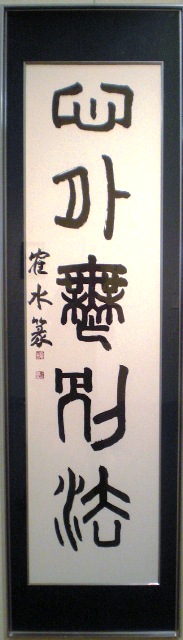 心外無別法
隺水篆